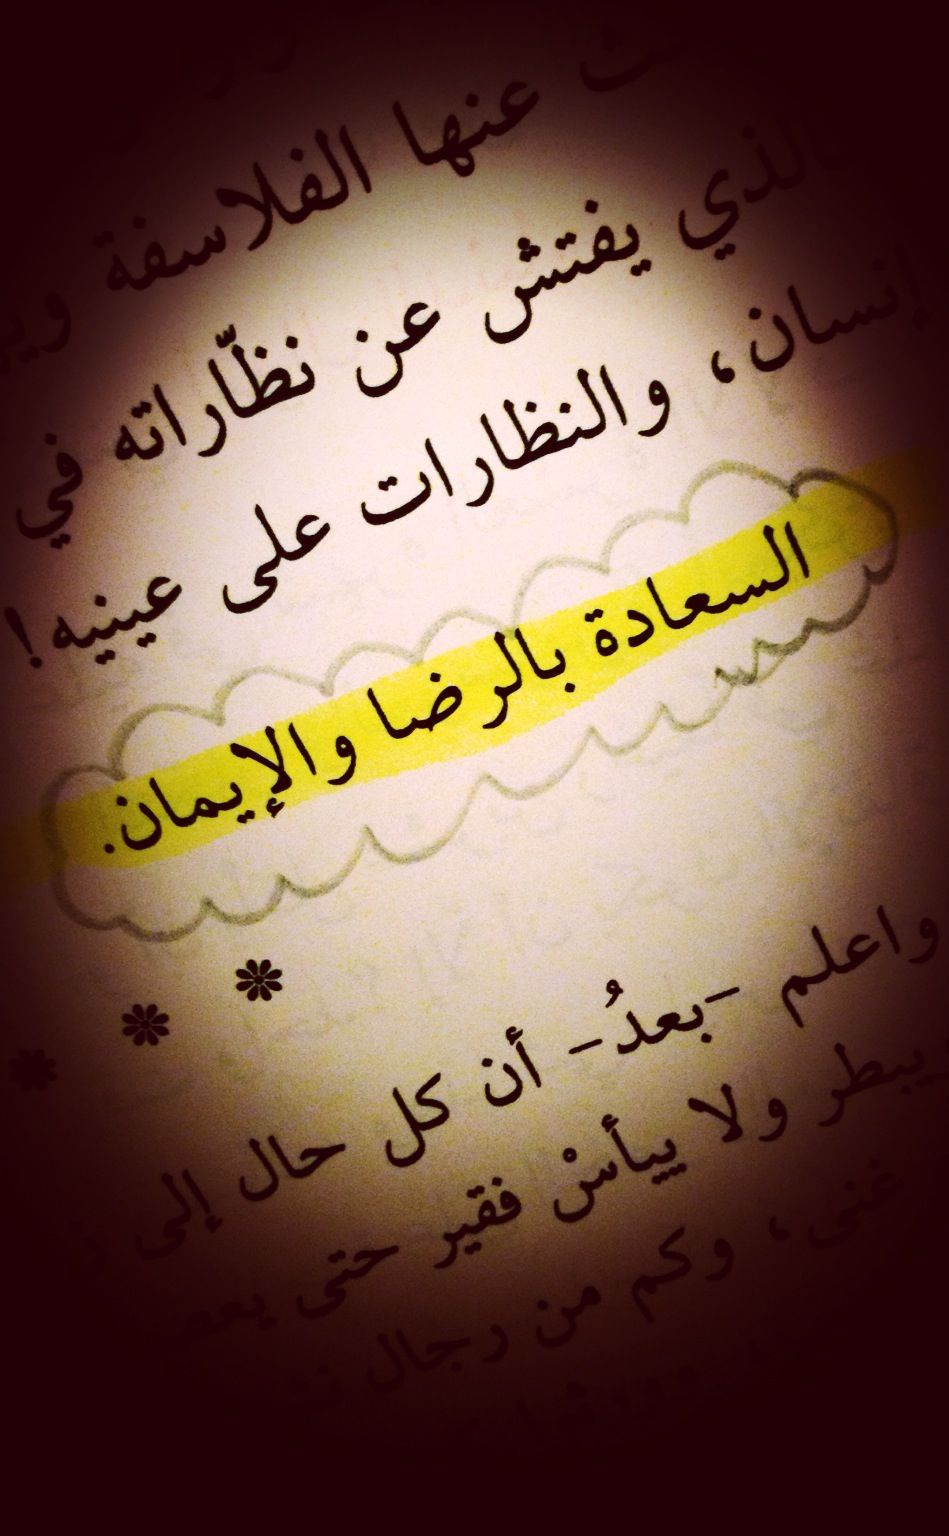 عنها الفلاسفة
الذي يفتش عن نظّاراته في
إنسان، والنظارات على عينيه!
السعادة بالرضا والإيمان.
❋ ❋ ❋
واعلم -بعدُ- أن كل حال إلى
يبطر ولا ييأسْ فقير حتى
غنى، وكم من رجال